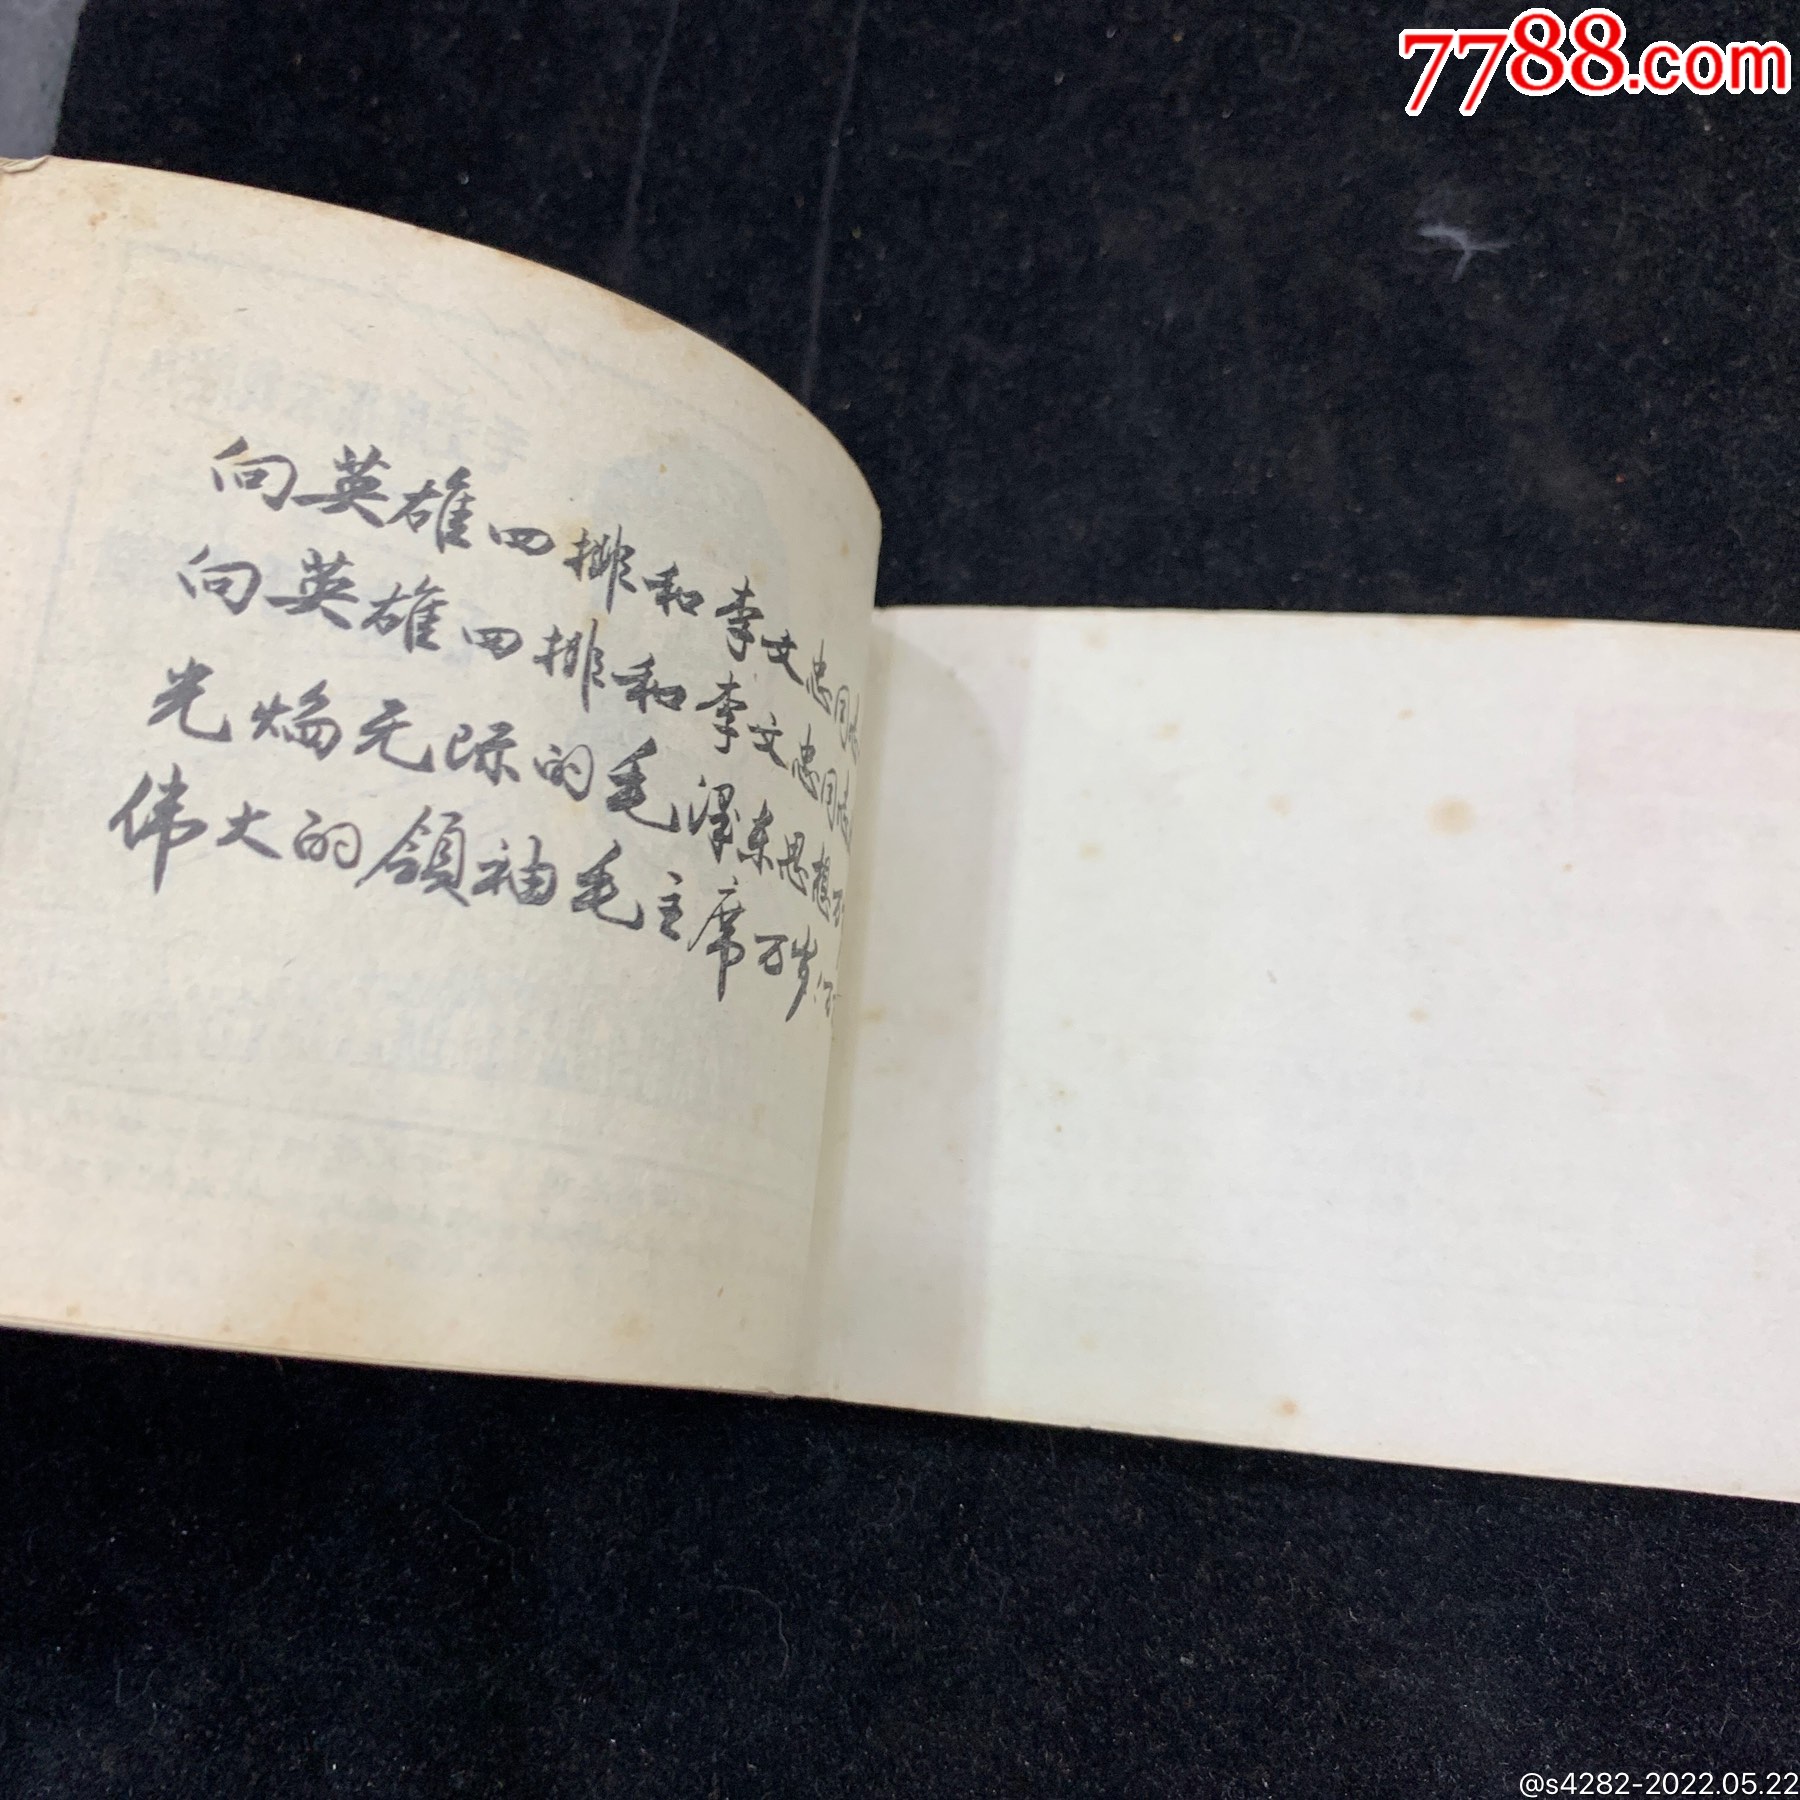 7788.com
向英雄四排和李文忠同志
向英雄四排和李文忠同志
光焰无际的毛泽东思想万
伟大的领袖毛主席万岁
@s4282-2022.05.22